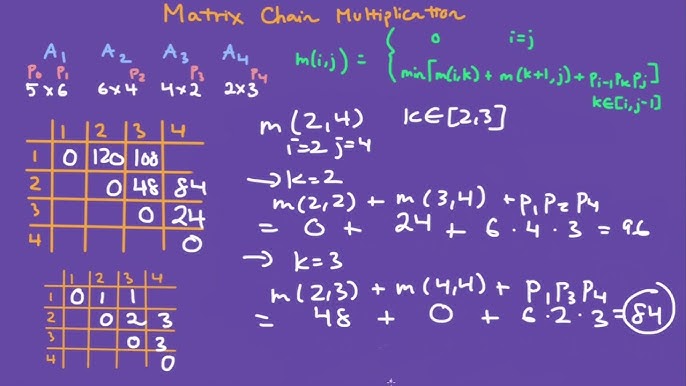 Matrix Chain Multiplication
A1 A2 A3 A4
P0 P1 P2 P3 P4
5x6 6x4 4x2 2x3
m(i,j) = { 0 i=j
min[m(i,k) + m(k+1,j) + Pi-1 Pk Pj]
k∈[i,j-1]
1 2 3 4
1 0 120 100
2 0 48 84
3 0 24
4 0
m(2,4) k∈[2,3]
i=2 j=4
→ k=2
m(2,2) + m(3,4) + P1 P2 P4
= 0 + 24 + 6 · 4 · 3 = 96
→ k=3
m(2,3) + m(4,4) + P1 P3 P4
= 48 + 0 + 6·2·3 = 84
1 2 3 4
1 0 1 1
2 0 2 3
3 0 3
4 0